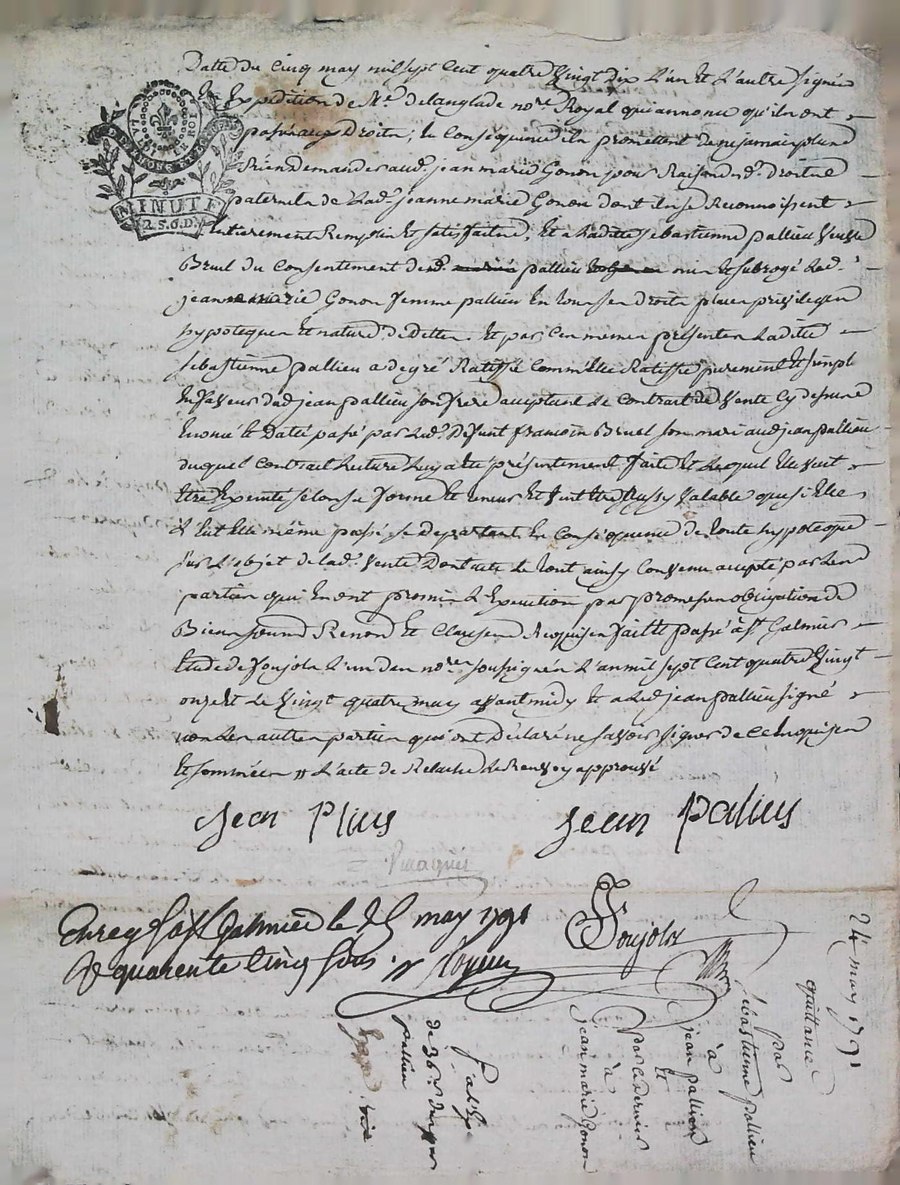 Datte du cinq may mil sept cent quatre vingt dix l'un et l'autre signé
En Expedition de Me. delanglade nore. Royal qui annonce qu'ils ont
passé aux Droits, En Consequence ils promettent de ne jamais plus
Rien demander aud. jean marie Gonon pour Raison des d. droits
paternels de Lad. jeanne marie Gonon dont ils se Reconnoissent
Entierement Remplis et satisfaits, Et a Ladite sebastienne pallieu veuve
Bruel du Consentement dud. pallieu mis et subrogé Lad.
jeanne marie Gonon femme pallieu En tous ses droits places privileges
hypoteques et nature de dettes. Et par ces memes presentes Ladite
sebastienne pallieu a de gré Ratiffié Comm'Elle Ratiffie purement et simpl.
En faveur dud jean pallieu son frere acceptant Le Contrat de Vente Cy dessus
Enoncé et Daté passé par Led. Defunt francois Bruel son mari aud jean pallieu
duquel Contrat Lecture Luy a été présentement faite Et Lequel Elle veut
Etre Executé selon sa forme Et teneur Et Veut Etre Aussy valable que si Elle
L'eut Elle même passé se departant En Conséquence de toute hypoteque
sur L'objet de Lad. vente Dont acte Le tout ainsy Convenu accepté par Les
parties qui En ont promis L'Execution par promesses obligation de
Biens soumd Renond et Clauses Requises fait et passé à St Galmier
Etude de foujols L'un des nores soussignés L'an mil sept cent quatre vingt
onze et Le vingt quatre may avant midy Et a Led jean pallieu signé
non Les autres parties qui ont Déclaré ne savoir signer de ce Enquises
Et sommées // L'acte de Relache Le Renvoy approuvé
Jean Plius
Jean Palius
Enreg. à St Galmier le 25 may 1791
R quarente cinq sous
Foujols
LA LOI LE ROI
MINUTE
2.S.6.D.
24 may 1791
quittance
par
sebastienne pallieu
à
jean pallieu
et
par ce dernier
à
jean marie Gonon
pallieu